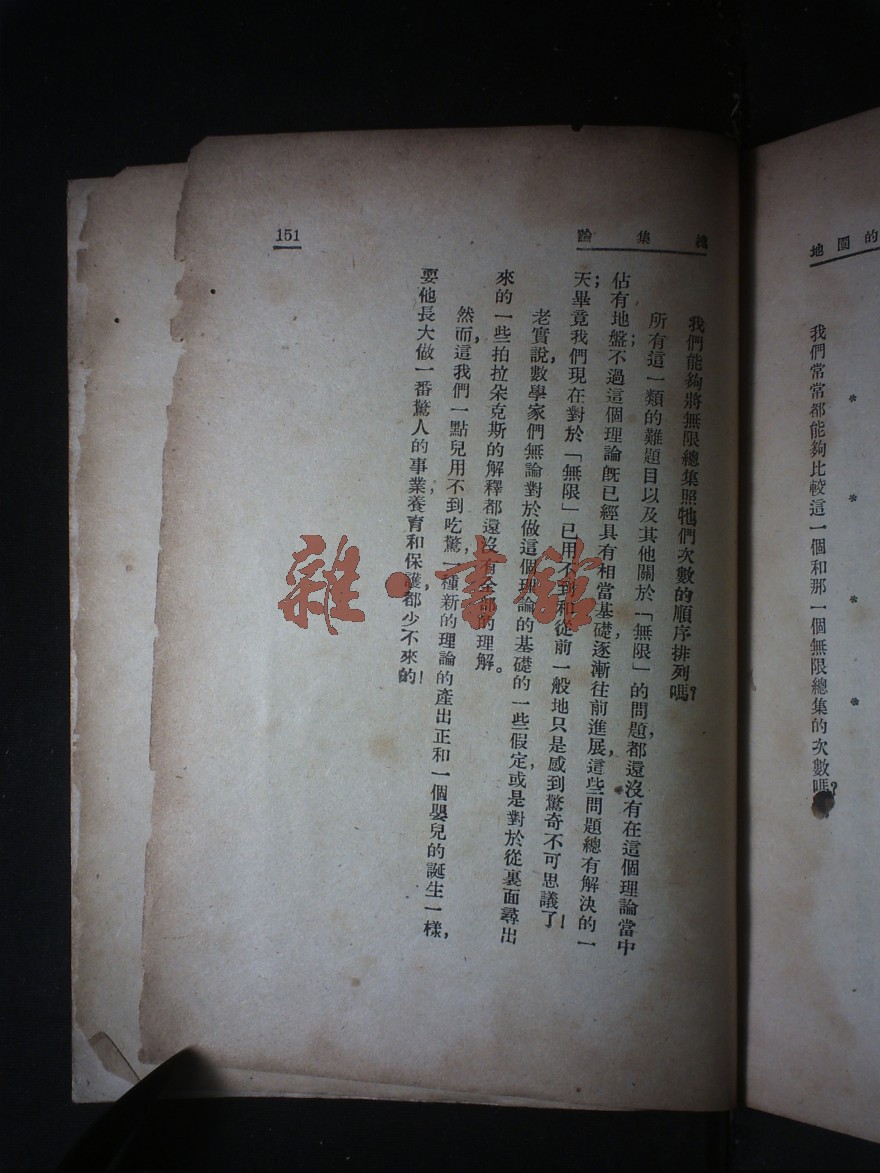 地圍的
我們常常都能夠比較這一個和那一個無限總集的次數嗎?
* * * *
總集論
151
我們能夠將無限總集照牠們次數的順序排列嗎?
所有這一類的難題目以及其他關於「無限」的問題,都還沒有在這個理論當中
佔有地盤;不過這個理論旣已經具有相當基礎,逐漸往前進展,這些問題總有解決的一
天;畢竟我們現在對於「無限」已用不到和從前一般地只是感到驚奇不可思議了!
老實說,數學家們無論對於做這個理論的基礎的一些假定,或是對於從裏面尋出
來的一些拍拉朵克斯的解釋都還沒有全部的理解。
然而,這我們一點兒用不到吃驚,一種新的理論的產出正和一個嬰兒的誕生一樣,
要他長大做一番驚人的事業,養育和保護都少不來的!
雜·書館